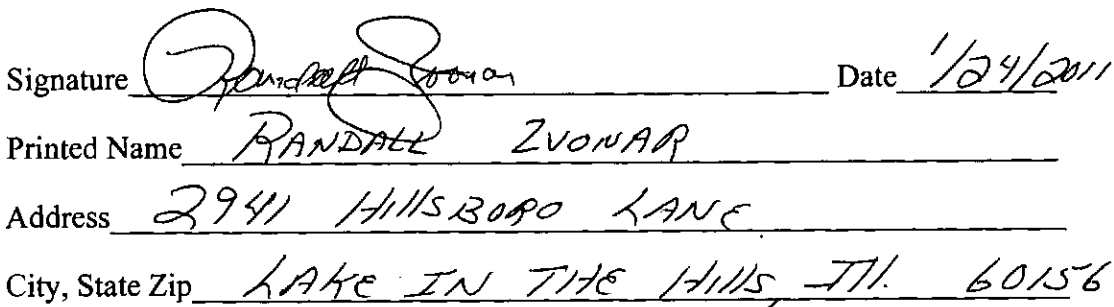 Signature Randall Zvonar Date 1/24/2011
Printed Name RANDALL ZVONAR
Address 2941 HILLSBORO LANE
City, State Zip LAKE IN THE HILLS, Ill. 60156